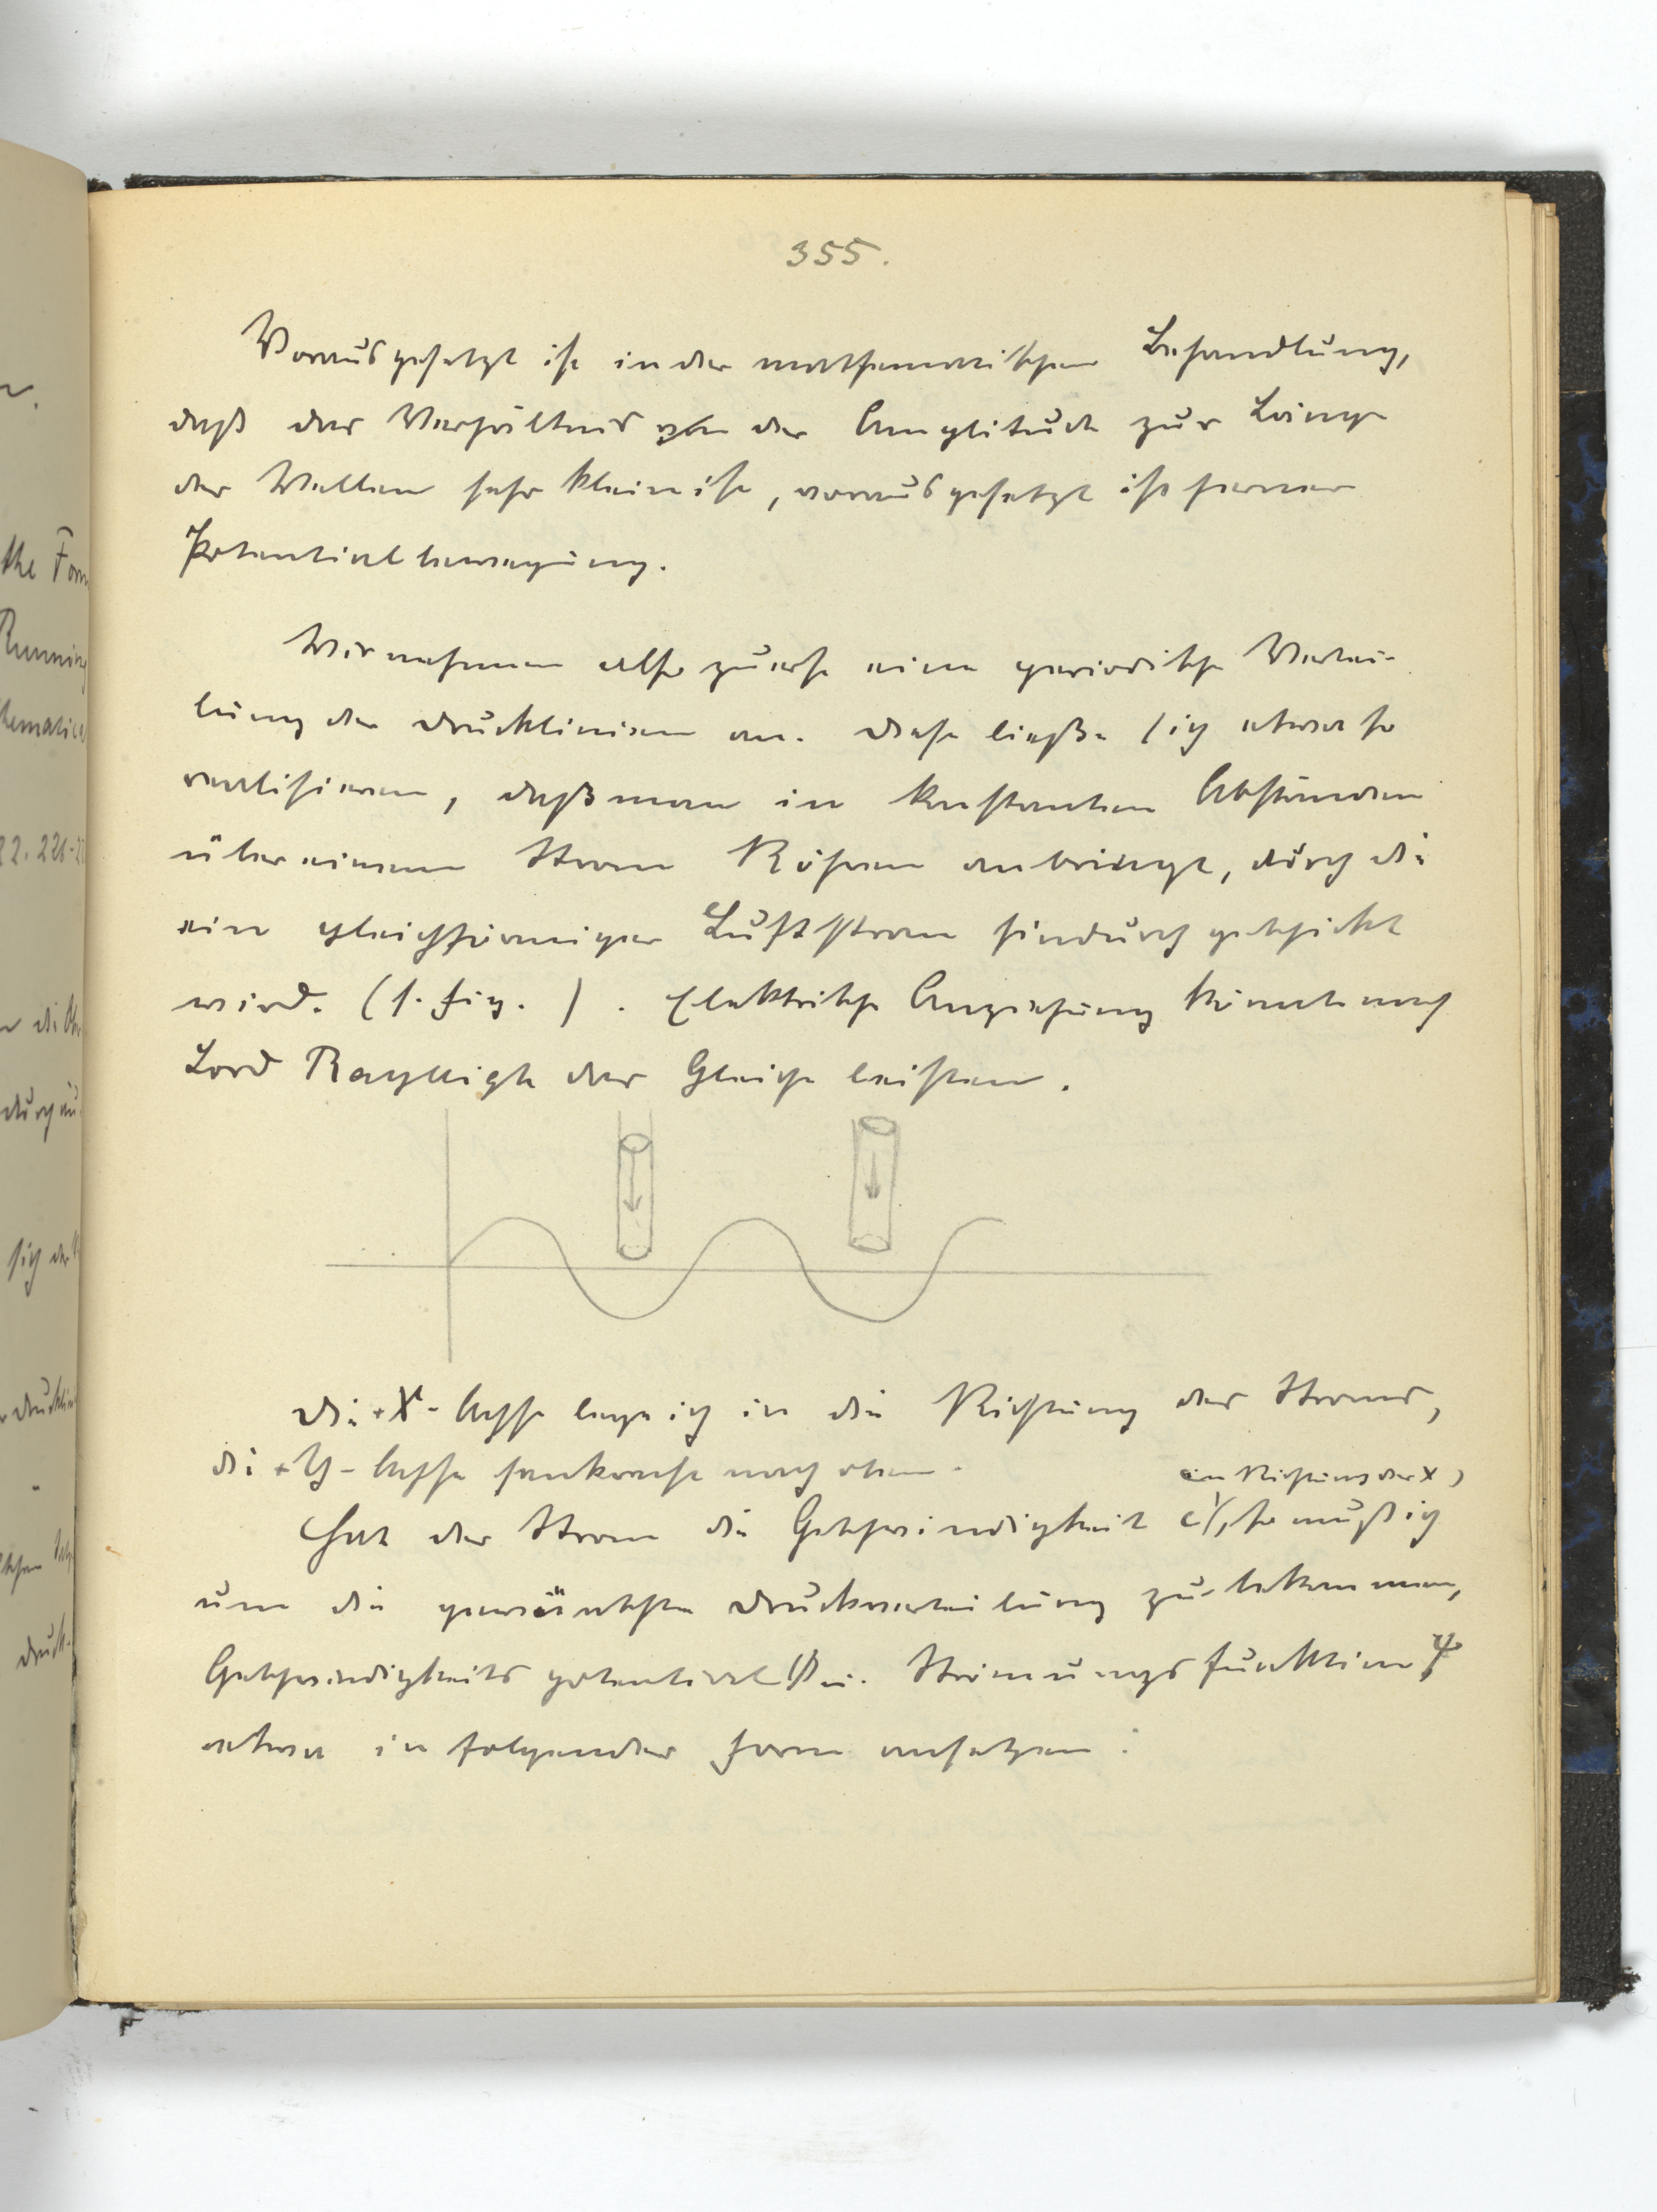 355.
Vorausgesetzt ist in der mathematischen Behandlung,
daß das Verhältnis der Amplitude zur Länge
der Wellen sehr klein ist, vorausgesetzt ist ferner
Potentialbewegung.
Wir nehmen also zuerst eine periodische Vertei-
lung der Drucklinien an. Diese ließe sich etwa so
realisieren, daß man in konstanten Abständen
über einem Strom Röhren anbringt, durch die
ein gleichförmiger Luftstrom hindurchgeschickt
wird. (s. Fig. ). Elektrische Anziehung könnte nach
Lord Rayleigh das Gleiche leisten.
Die +X-Achse lege ich in die Richtung des Stroms,
die +Y-Achse senkrecht nach oben.
in Richtung der X
Hat der Strom die Geschwindigkeit c, so muß ich
um die gewünschte Druckverteilung zu bekommen,
Geschwindigkeitspotential Φ u. Strömungsfunktion Ψ
etwa in folgender Form ansetzen:
the Form
Running
22. 226-22
durch
sich der
Druck-